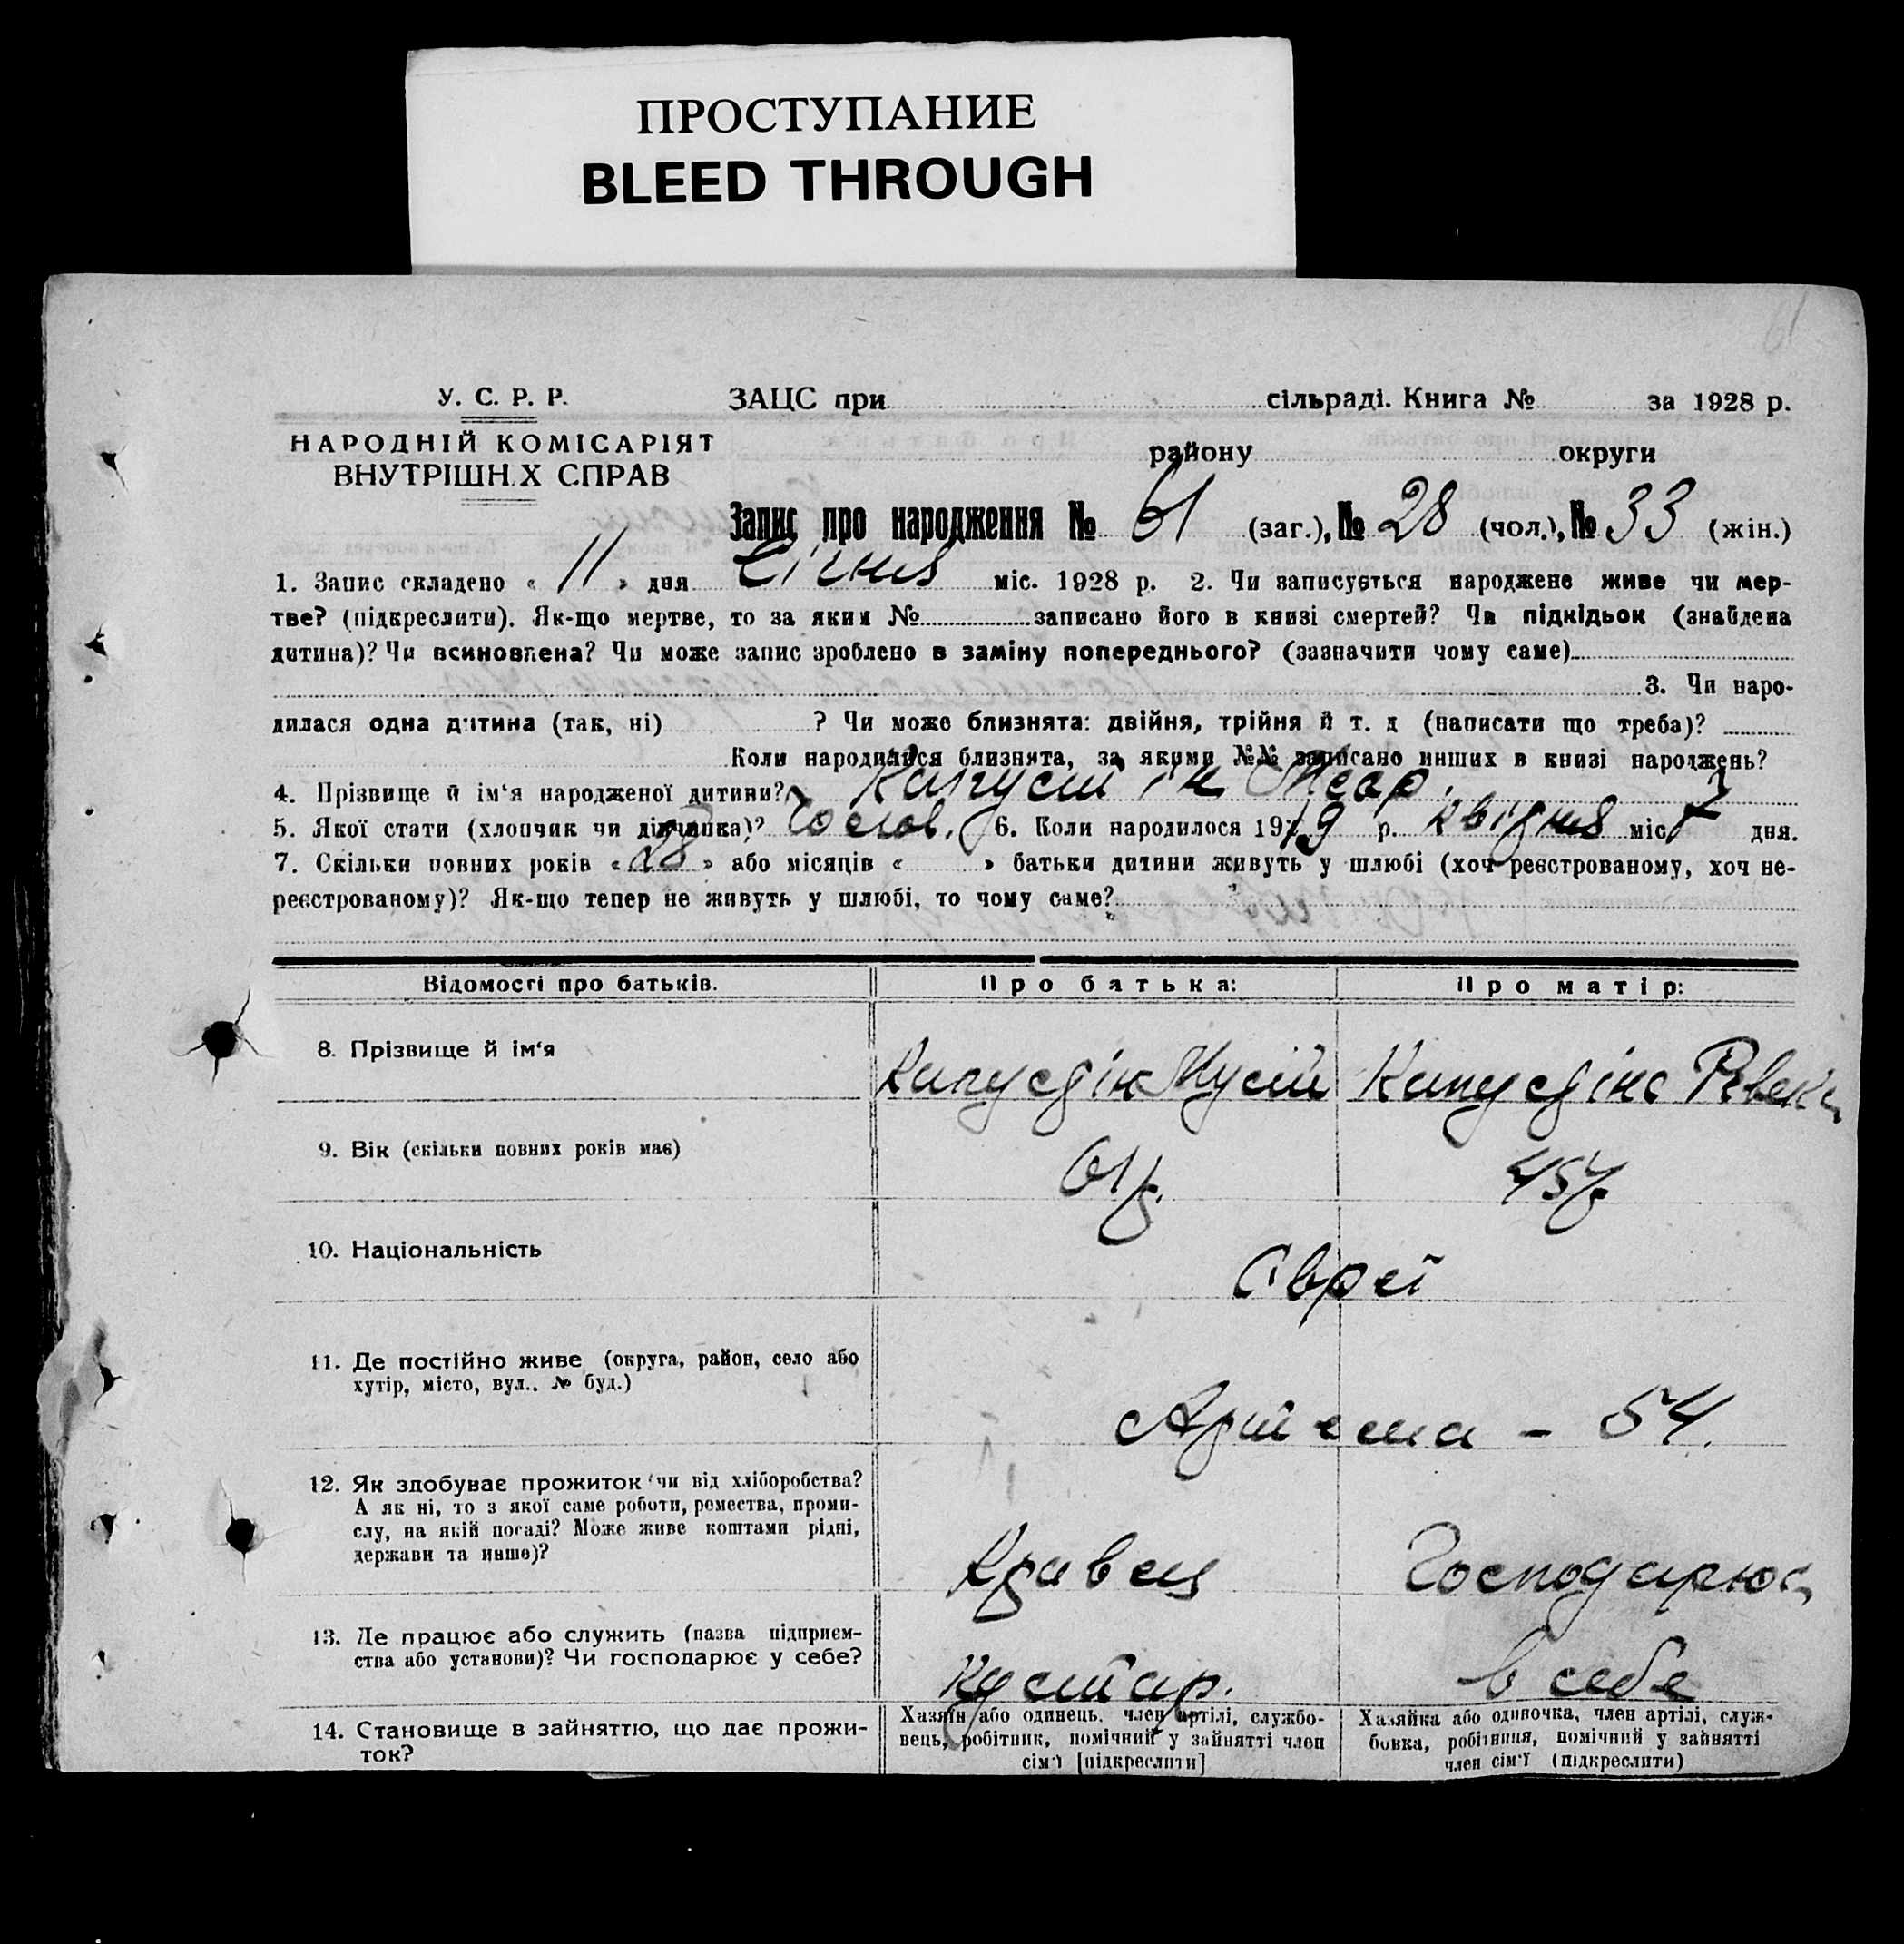 ПРОСТУПАНИЕ
BLEED THROUGH
61
У. С. Р. Р.
ЗАЦС при сільраді. Книга № за 1928 р.
НАРОДНІЙ КОМІСАРІЯТ
ВНУТРІШН.Х СПРАВ
району округи
Запис про народження № 61 (заг.), № 28 (чол.), № 33 (жін.)
1. Запис складено « 11 » дня Січня міс. 1928 р. 2. Чи записується народжене живе чи мер-
тве? (підкреслити). Як-що мертве, то за яким № записано його в книзі смертей? Чи підкідьок (знайдена
дитина)? Чи всиновлена? Чи може запис зроблено в заміну попереднього? (зазначити чому саме)
3. Чи наро-
дилася одна дитина (так, ні) ? Чи може близнята: двійня, трійня й т. д (написати що треба)?
Коли народилися близнята, за якими №№ записано инших в книзі народжень?
4. Прізвище й ім'я народженої дитини? Капустін
5. Якої стати (хлопчик чи дівчинка)? Чолов. 6. Коли народилося 19 9 р. квітня міс. 7 дня.
7. Скільки повних років « 28 » або місяців « » батьки дитини живуть у шлюбі (хоч реєстрованому, хоч не-
реєстрованому)? Як-що тепер не живуть у шлюбі, то чому саме?
Відомості про батьків. Про батька: Про матір:
8. Прізвище й ім'я Капустін Мусій Капустіна Рівека
9. Вік (скільки повних років має) 61 р. 45 р.
10. Національність Євреї
11. Де постійно живе (округа, район, село або
хутір, місто, вул.. № буд.)
Артема - 54.
12. Як здобуває прожиток чи від хліборобства?
А як ні, то з якої саме роботи, ремества, проми-
слу, на якій посаді? Може живе коштами рідні,
держави та инше)?
Кравець Господарює
13. Де працює або служить (назва підприєм-
ства або установи)? Чи господарює у себе?
Кустар. в себе
14. Становище в зайняттю, що дає прожи-
ток?
Хазяїн або одинець, член артілі, службо-
вець, робітник, помічний у зайнятті член
сім'ї [підкреслити]
Хазяйка або одиночка, член артілі, служ-
бовка, робітниця, помічний у зайнятті
член сім'ї (підкреслити)